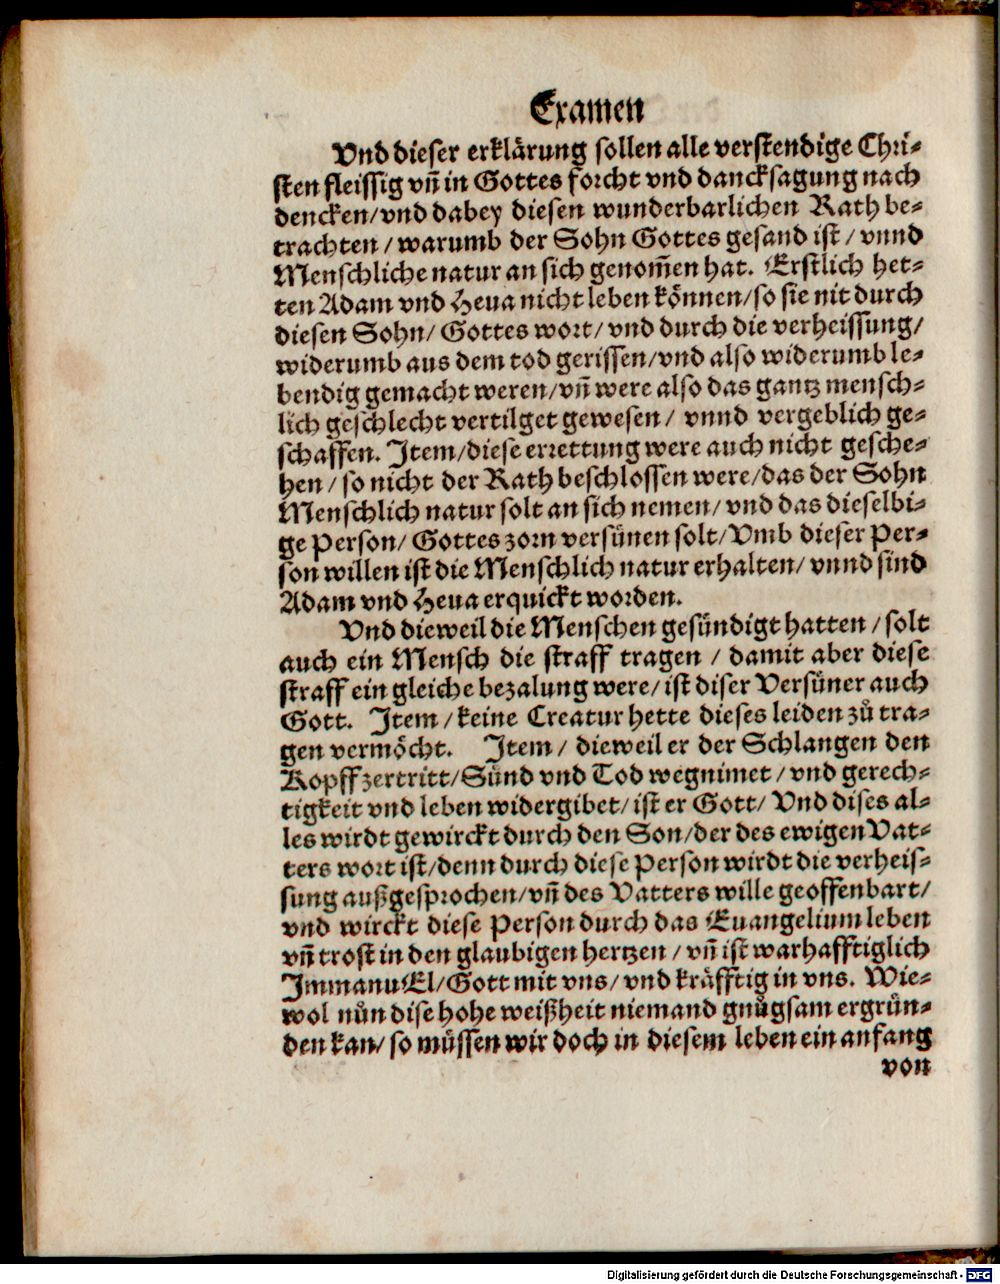 Examen
Vnd dieser erklärung sollen alle verstendige Chri-
sten fleissig vñ in Gottes forcht vnd dancksagung nach
dencken/vnd dabey diesen wunderbarlichen Rath be-
trachten / warumb der Sohn Gottes gesand ist / vnnd
Menschliche natur an sich genom̃en hat. Erstlich het-
ten Adam vnd Heua nicht leben können/so sie nit durch
diesen Sohn/ Gottes wort/ vnd durch die verheissung/
widerumb aus dem tod gerissen/vnd also widerumb le-
bendig gemacht weren/vñ were also das gantz mensch-
lich geschlecht vertilget gewesen/ vnnd vergeblich ge-
schaffen. Item/diese errettung were auch nicht gesche-
hen / so nicht der Rath beschlossen were/das der Sohn
Menschlich natur solt an sich nemen/ vnd das dieselbi-
ge Person/ Gottes zorn versünen solt/Vmb dieser Per-
son willen ist die Menschlich natur erhalten/ vnnd sind
Adam vnd Heua erquickt worden.
Vnd dieweil die Menschen gesündigt hatten / solt
auch ein Mensch die straff tragen / damit aber diese
straff ein gleiche bezalung were/ ist diser Versüner auch
Gott. Item / keine Creatur hette dieses leiden zů tra-
gen vermöcht. Item / dieweil er der Schlangen den
Kopff zertritt/Sünd vnd Tod wegnimet / vnd gerech-
tigkeit vnd leben widergibet/ ist er Gott/ Vnd dises al-
les wirdt gewirckt durch den Son/der des ewigen Vat-
ters wort ist/denn durch diese Person wirdt die verheis-
sung außgesprochen/vñ des Vatters wille geoffenbart/
vnd wirckt diese Person durch das Euangelium leben
vñ trost in den glaubigen hertzen / vñ ist warhafftiglich
ImmanuEl/Gott mit vns/ vnd kräfftig in vns. Wie-
wol nůn dise hohe weißheit niemand gnůgsam ergrün-
den kan/ so müssen wir doch in diesem leben ein anfang
von
Digitalisierung gefördert durch die Deutsche Forschungsgemeinschaft - DFG